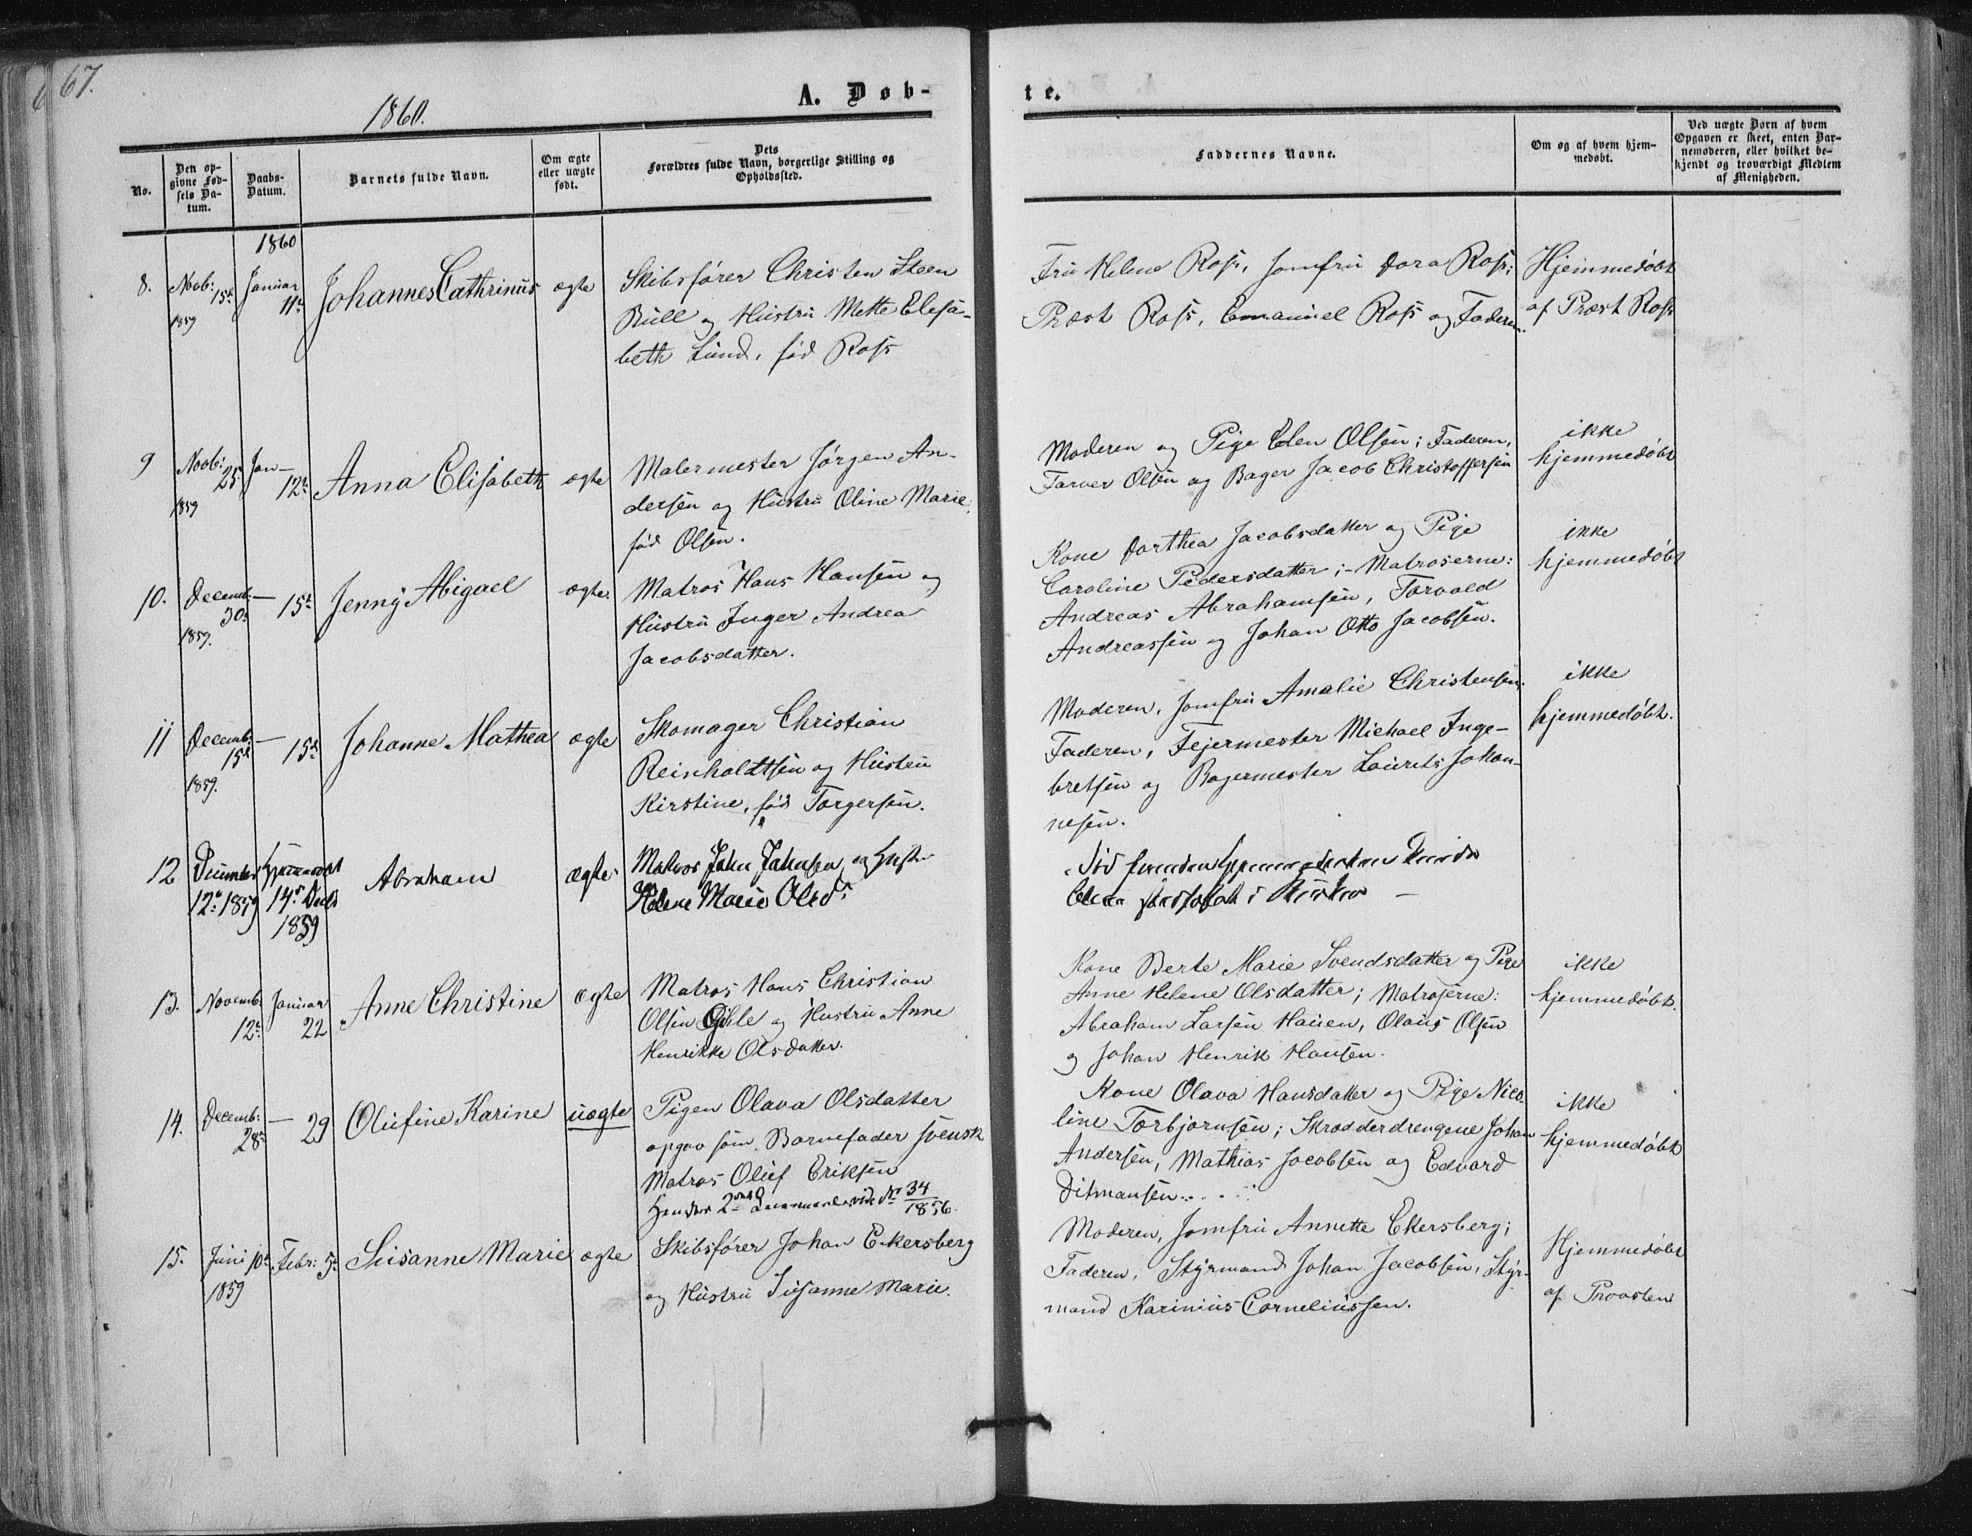 67.
1860.
A. Døb-
te.
No.
Den op-
givne Fød-
sels Da-
tum.
Daabs-
Datum.
Barnets fulde Navn.
Om ægte
eller uægte
født.
Dets
Forældres fulde Navn, borgerlige Stilling og
Opholdssted.
Faddernes Navne.
Om og af hvem hjem-
medøbt.
Ved uægte Børn af hvem
Opgaven er skeet, enten Bar-
nemoderen, eller hvilket be-
kjendt og troværdigt Medlem
af Menigheden.
1860
8.
Novb: 15de
1859
Januar
11te
Johannes Cathrinus
ægte
Skibsfører Christen Steen
Bull og Hustru Mette Elisa-
beth Lund, fød Ross
Fru Helene Ross, Jomfru Dora Ross;
Præst Ross, Emanuel Ross og Faderen.
Hjemmedøbt
af Præst Ross
9
Novb: 25
1859
Jan-
12te
Anna Elisabeth
ægte
Malermester Jørgen An-
dersen og Hustru Oline Marie,
fød Olsen.
Moderen og Pige Elen Olsen; Faderen,
Farver Olsen og Bager Jacob Christoffersen
ikke
hjemmedøbt
10.
Decemb. 30
1859.
— 15t
Jenny Abigael
ægte.
Matros Hans Hansen og
Hustru Inger Andrea
Jacobsdatter.
Kone Dorthea Jacobsdatter og Pige
Caroline Pedersdatter; - Matroserne:
Andreas Abrahamsen, Torvald
Andreassen og Johan Otto Jacobsen.
ikke
hjemmedøbt
11
Decemb. 15de
1859.
— 15de
Johanne Mathea
ægte
Skomager Christian
Reinholdtsen og Hustru
Kirstine, fød Torgersen.
Moderen, Jomfru Amalie Christensen;
Faderen, Fejermester Michael Inge-
bretsen og Bagermester Laurits Johan-
nesen.
ikke
hjemmedøbt.
12
December
12te 1859
Hjemmedøbt
14de Decb
1859
Abraham
ægte
Matros John Johnsen og Hustr
Helene Marie Olsdr
Død forinden
i Kirken —
13.
Novemb. 12te
Januar
22
Anne Christine
ægte
Matros Hans Christian
Olsen og Hustru Anne
Henrikke Olsdatter.
Kone Berte Marie Svendsdatter og Pige
Anne Helene Olsdatter; Matroserne:
Abraham Larsen Hauen, Olaus Olsen
og Johan Henrik Hansen.
ikke
hjemmedøbt.
14.
Decemb: 28de
— 29
Olufine Karine
uægte
Pigen Olava Olsdatter
opgav som Barnefader svensk
Matros Oluf Eriksen
Hendes 2det vide No 34/1856.
Kone Olava Hansdatter og Pige Nico-
line Torbjørnsen; Skrædderdrengene Johan
Andersen, Mathias Jacobsen og Edvard
Ditmansen.
ikke
hjemmedøbt
15.
Juni 10de
1859
Febr: 5t
Susanne Marie
ægte
Skibsfører Johan Eckersberg
og Hustru Susanne Marie.
Moderen, Jomfru Annette Ekersberg;
Faderen, Styrmand Johan Jacobsen, Styr-
mand Karinius Corneliussen.
Hjemmedøbt
af Provsten